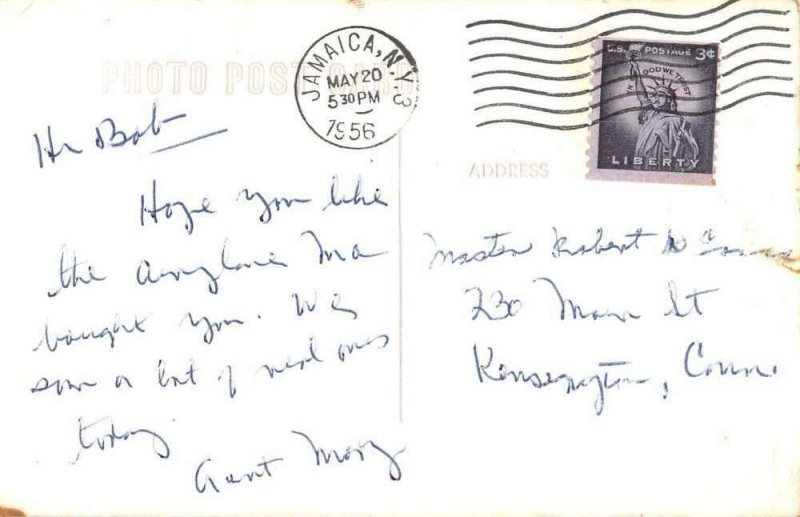 PHOTO POST CARD
JAMAICA, N.Y. 3
MAY 20
5 30 PM
1956
U.S. POSTAGE 3¢
IN GOD WE TRUST
LIBERTY
ADDRESS
Hi Bob
Hope you like
the airplanes Ma
bought you. We
saw a lot of real ones
today.
Aunt Mary
Master Robert
230 Main St
Kensington, Conn.